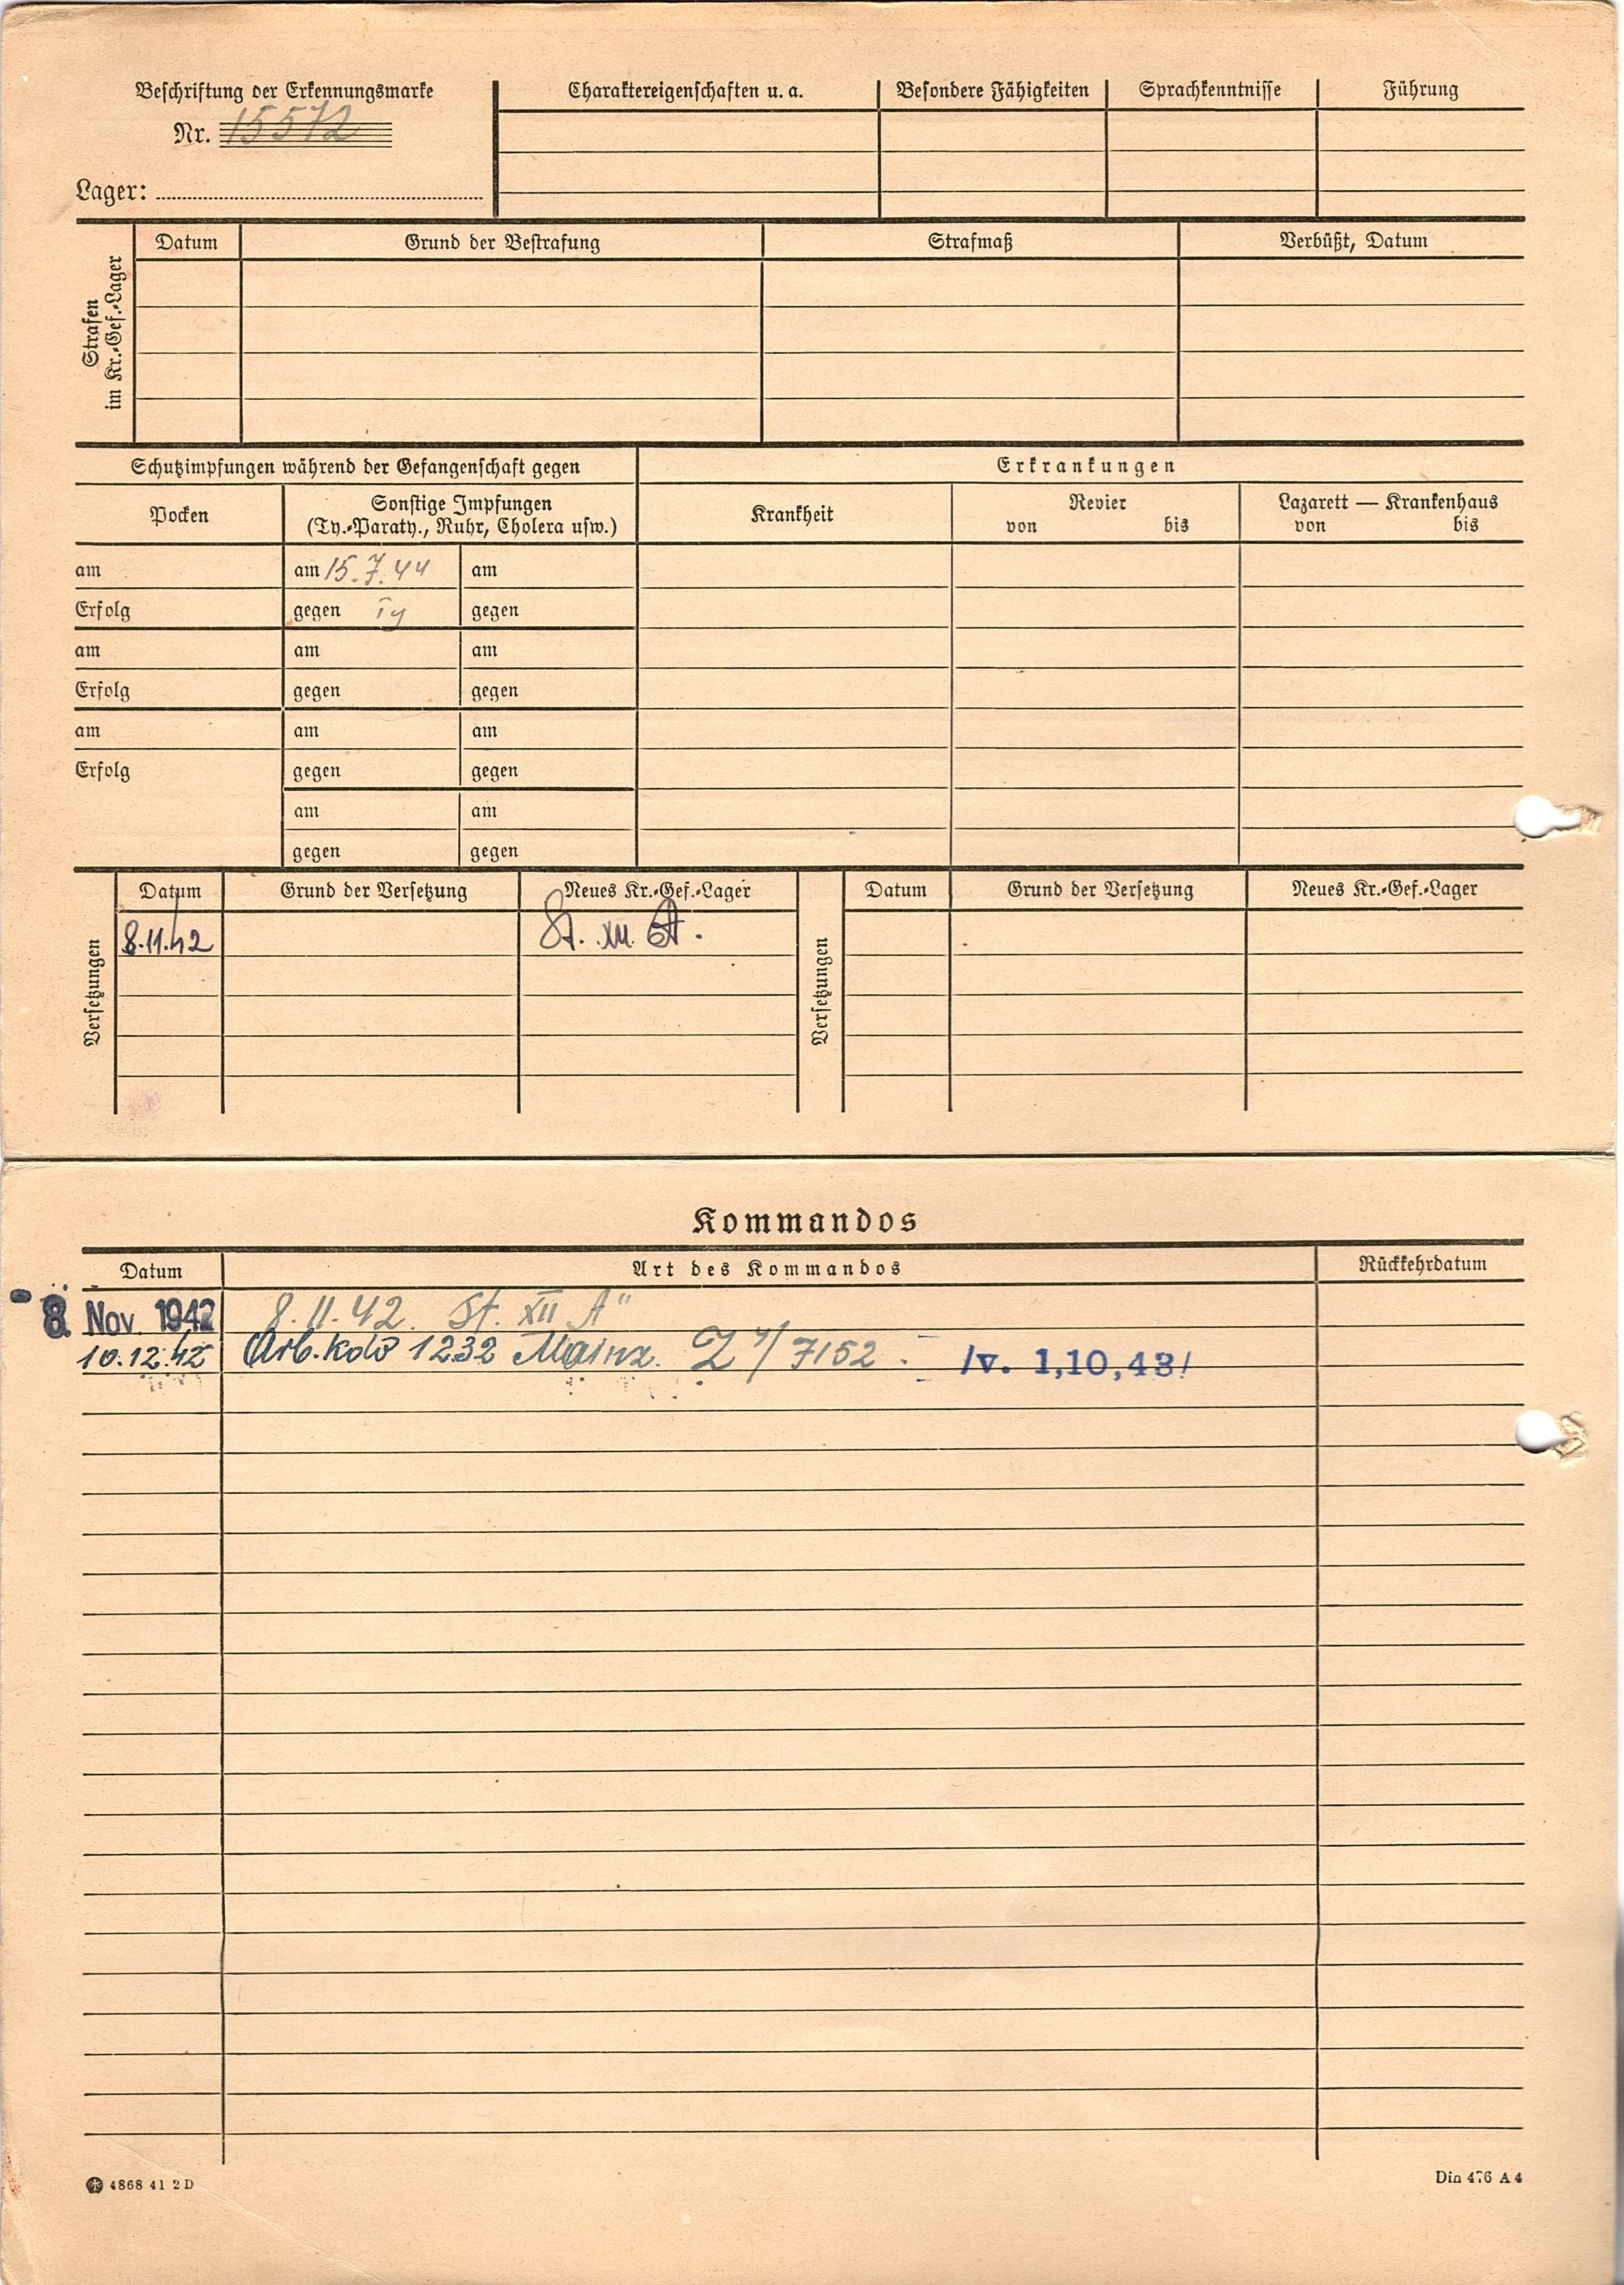 Beschriftung der Erkennungsmarke
Nr. 15572
Lager:
Charaktereigenschaften u. a. Besondere Fähigkeiten Sprachkenntnisse Führung
Strafen
im Kr.-Gef.-Lager
Datum Grund der Bestrafung Strafmaß Verbüßt, Datum
Schutzimpfungen während der Gefangenschaft gegen Erkrankungen
Pocken
Sonstige Impfungen
(Ty.-Paraty., Ruhr, Cholera usw.)
Krankheit
Revier
von bis
Lazarett — Krankenhaus
von bis
am am 15.7.44 am
Erfolg gegen Ty gegen
am am am
Erfolg gegen gegen
am am am
Erfolg gegen gegen
am am
gegen gegen
Versetzungen
Datum Grund der Versetzung Neues Kr.-Gef.-Lager
8.11.42 St. XII. A.
Versetzungen
Datum Grund der Versetzung Neues Kr.-Gef.-Lager
Kommandos
Datum Art des Kommandos Rückkehrdatum
8. Nov. 1942 8.11.42. St. XII A"
10.12.42 Arb.kdo 1232 Mainz. /7152. /v. 1,10,43/
4868 41 2 D
Din 476 A 4